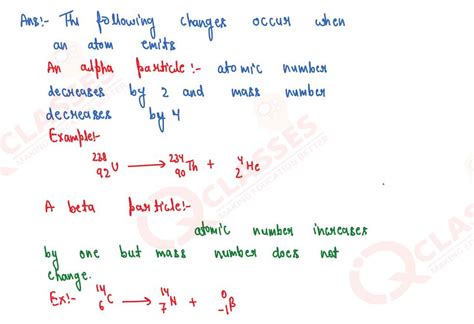 Ans:- The following changes occur when
an atom emits
An alpha particle:- atomic number
decreases by 2 and mass number
decreases by 4
Example:-
²³⁸₉₂U ⟶ ²³⁴₉₀Th + ⁴₂He
A beta particle:-
atomic number increases
by one but mass number does not
change.
Ex:- ¹⁴₆C ⟶ ¹⁴₇N + ⁰₋₁β
IQ CLASSES
MAKING EDUCATION BETTER